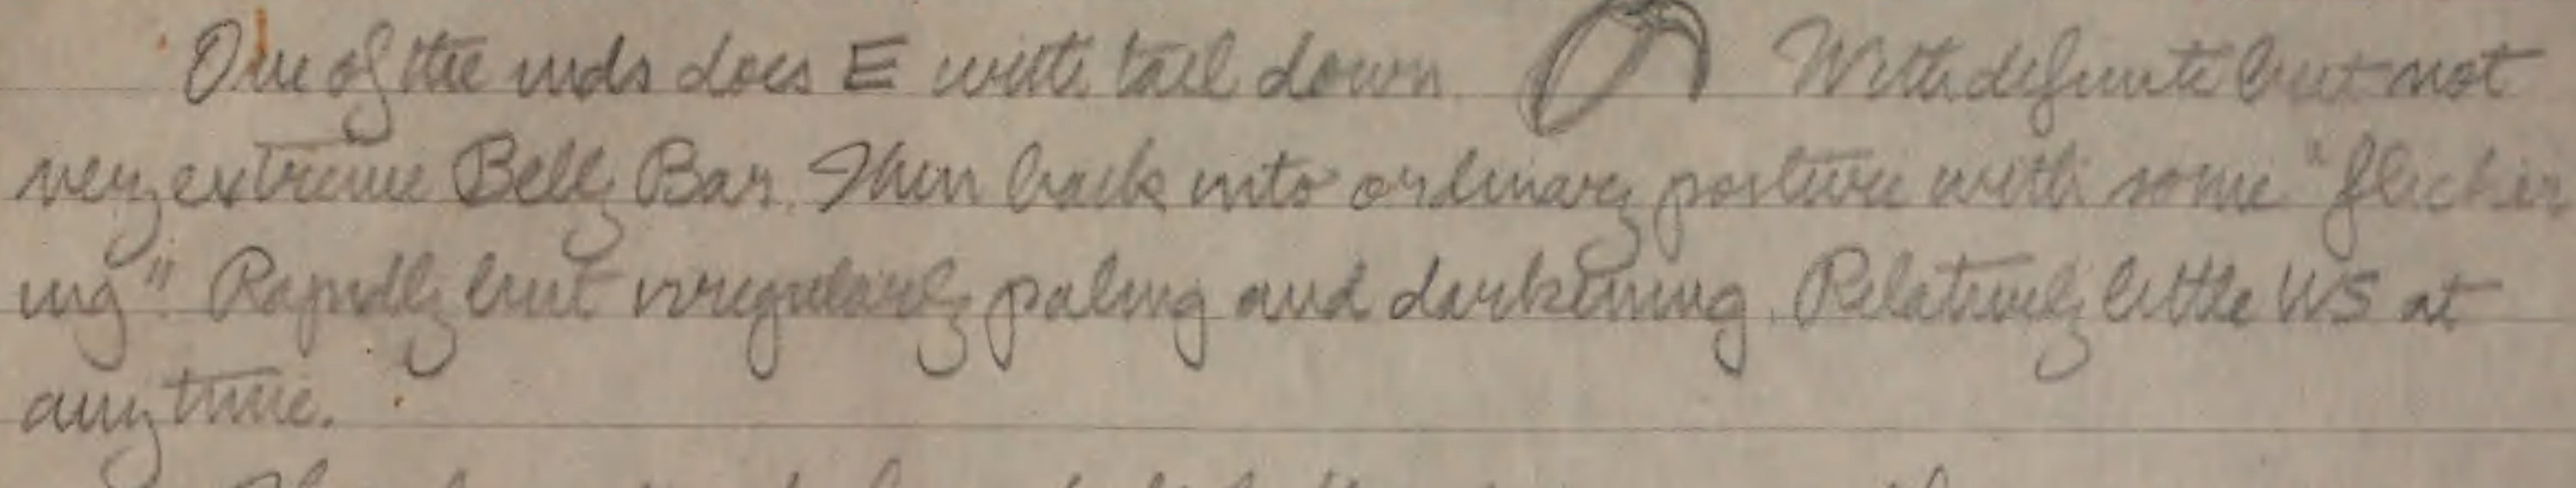 One of the inds does E with tail down. With definite but not
very extreme Belly Bar. Then back into ordinary posture with some "flicker
ing". Rapidly but irregularly paling and darkening. Relatively little WS at
any time.